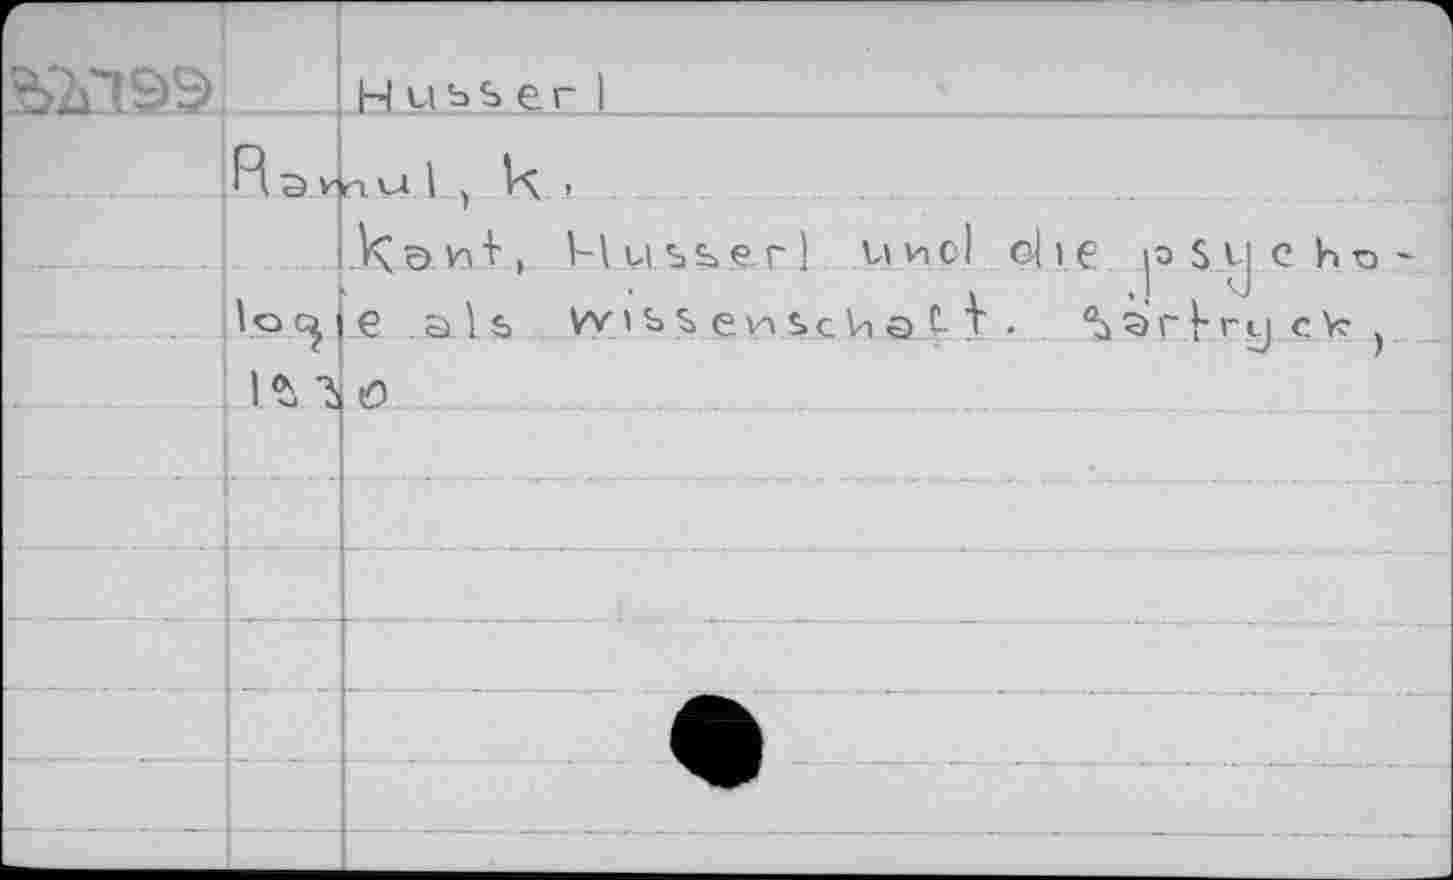 Husserl
Ramul, K.
Kant, Husserl und die psycho-
logie als wissenschaft. Särtryck,
1930